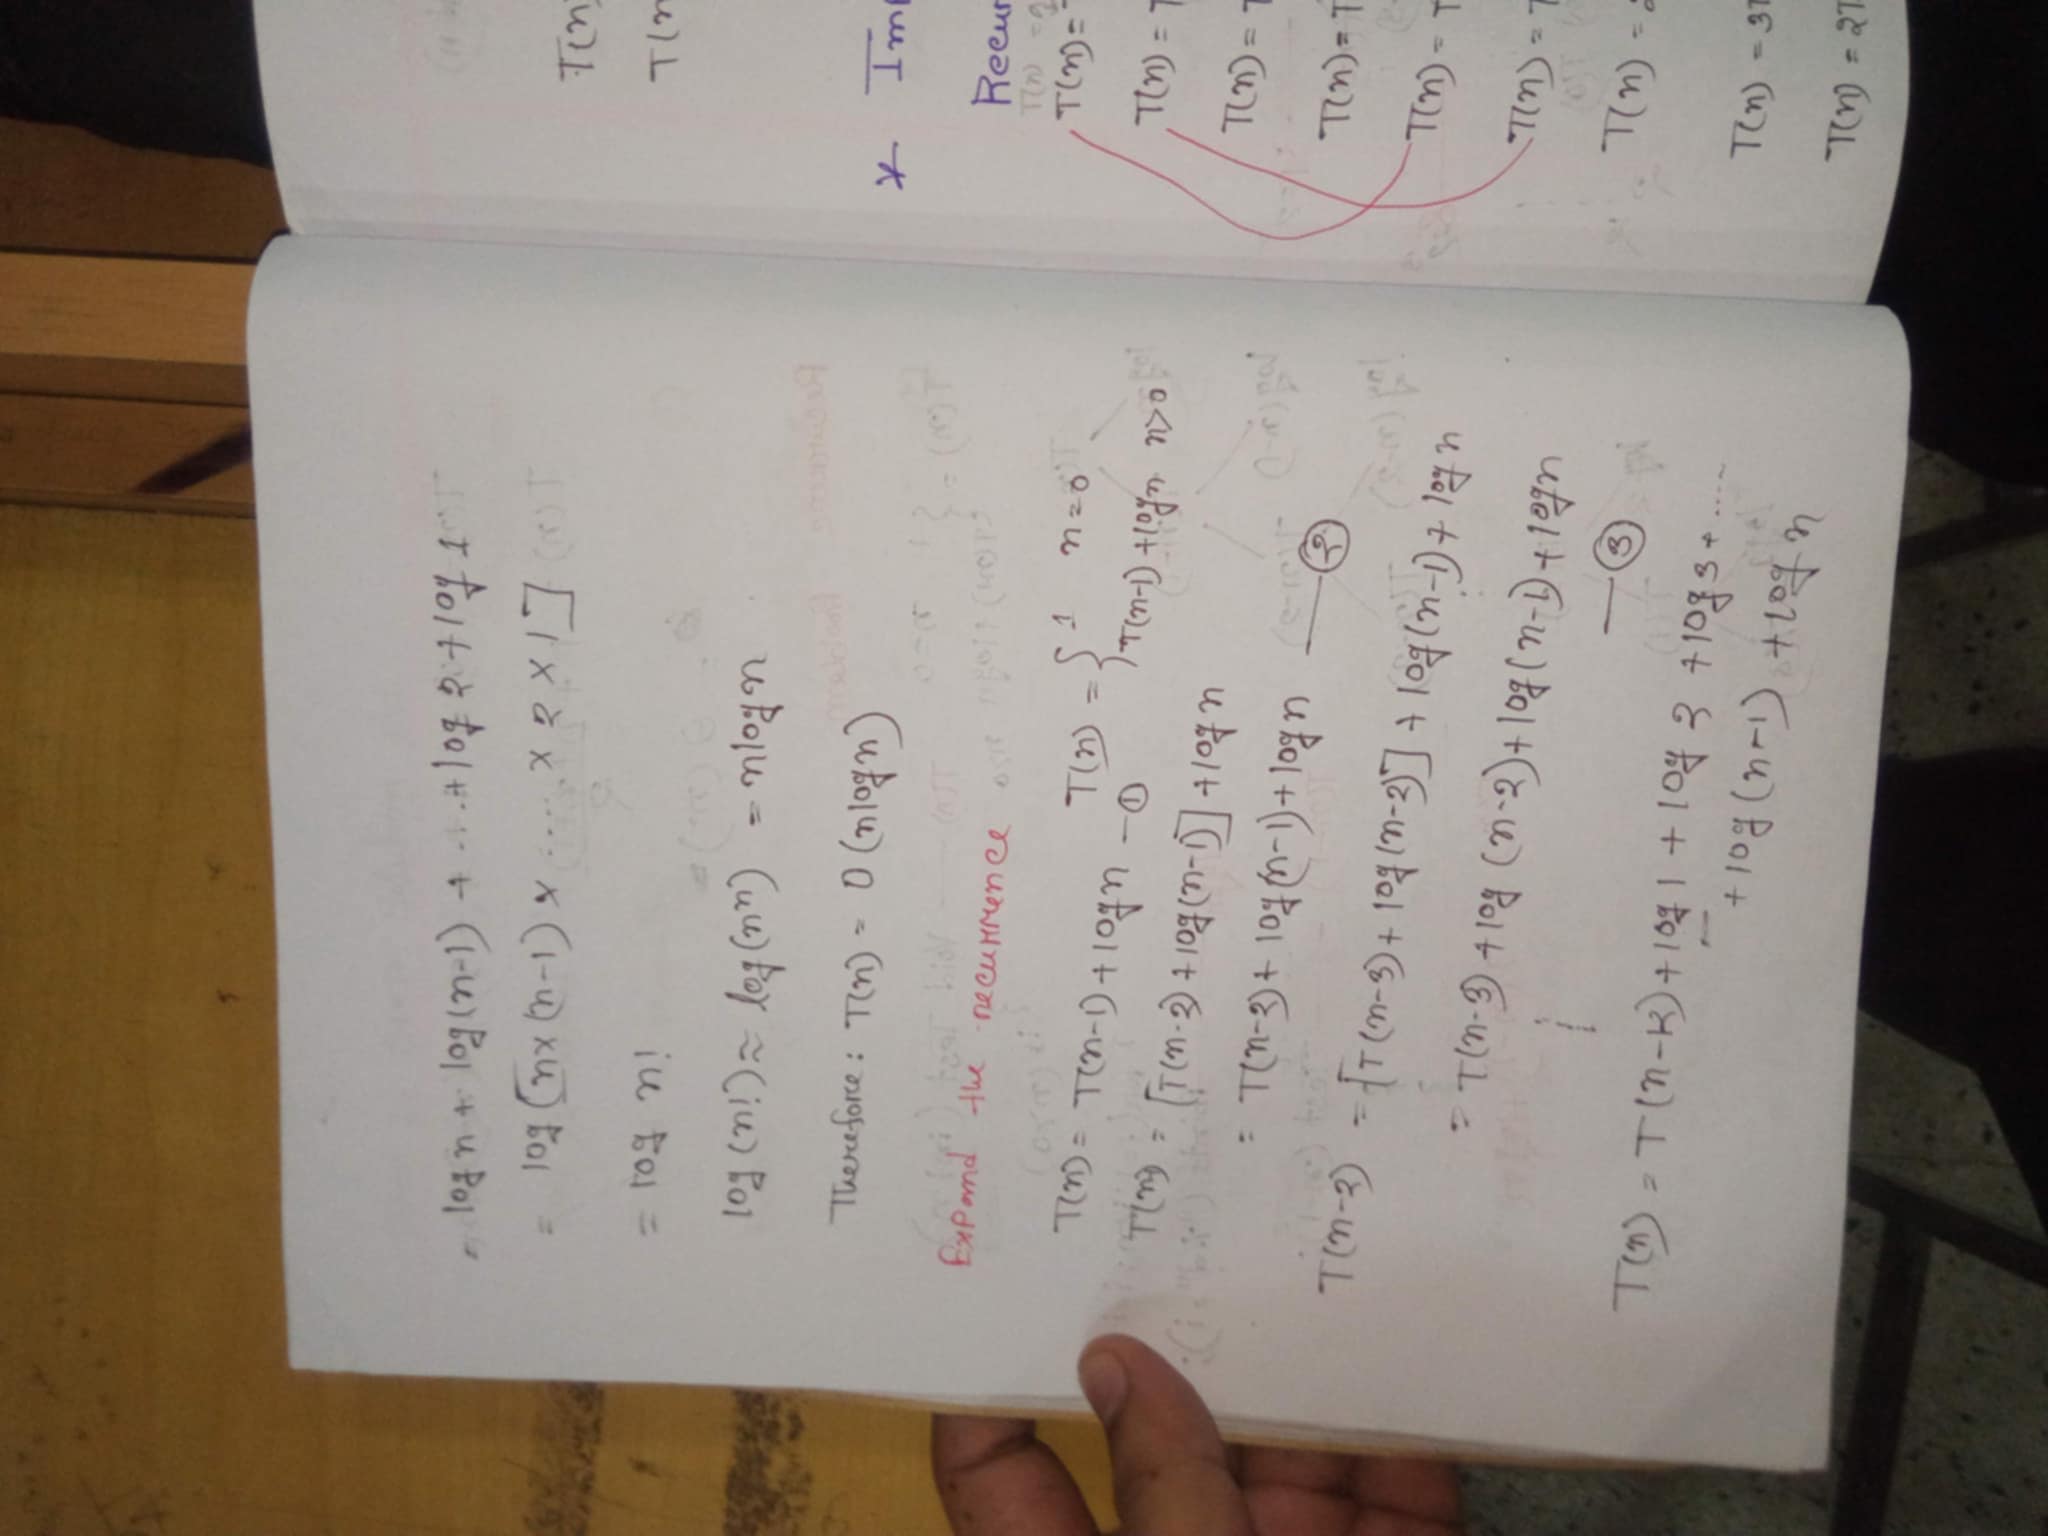 = log n + log(n-1) + ...+log 2 + log 1
= log [n×(n-1) × .... × 2 × 1]
= log n!
log (n!) ≈ log(nⁿ) = nlogn
Therefore: T(n) = O(nlogn)
Expand the recurrence
T(n) = T(n-1) + logn —①
T(n) = { 1 n=0
T(n-1) + logn n>0
T(n) = [T(n-2) + log(n-1)] + logn
= T(n-2) + log(n-1) + logn —②
T(n-2) = [T(n-3) + log(n-2)] + log(n-1) + logn
= T(n-3) + log (n-2) + log(n-1) + logn
—③
T(n) = T(n-k) + log1 + log 2 + log3 + .....
+ log(n-1) + log n
T(n)
T(n
* Imp
Recur
T(n) =
T(n) =
T(n) =
T(n) = T
T(n) = T
T(n) =
T(n) =
T(n) = 3T
T(n) = 2T